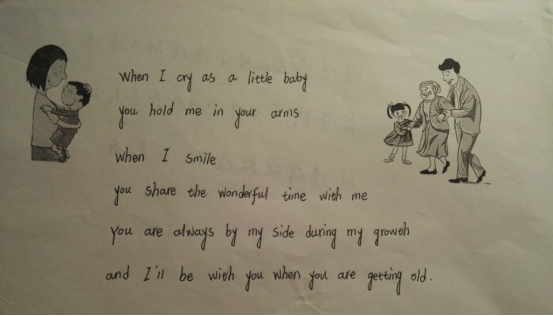 When I cry as a little baby
you hold me in your arms
When I smile
you share the wonderful time with me
you are always by my side during my growth
and I'll be with you when you are getting old.